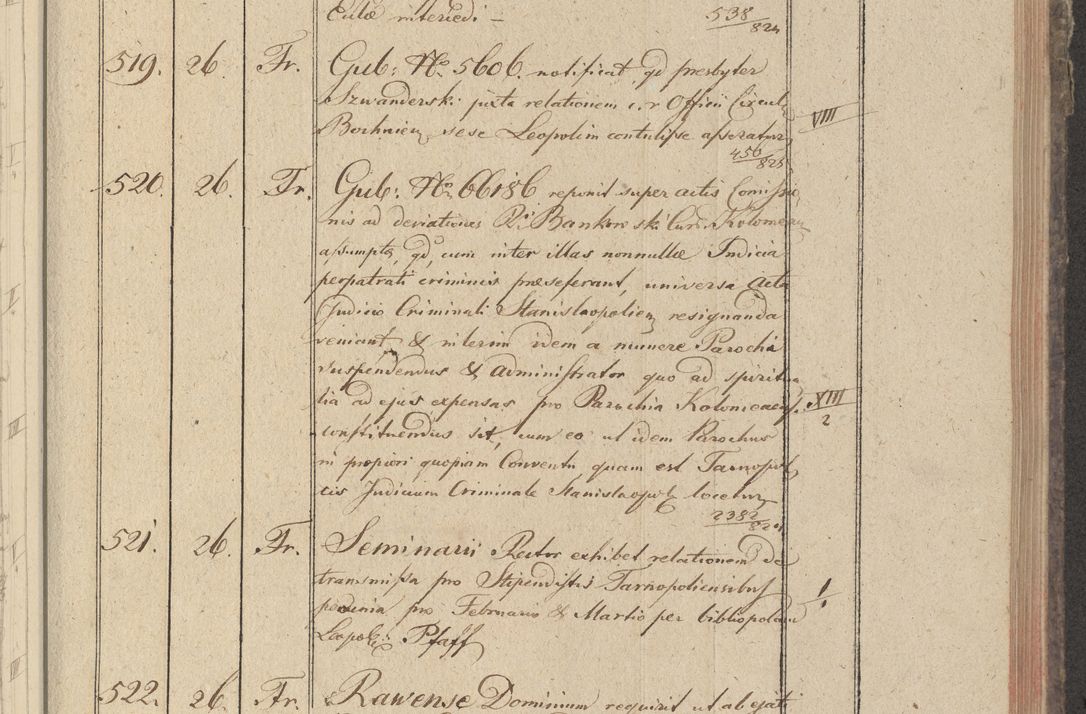 538/824
519. 26. Fr. Gub: No. 5606. notificat, qd presbyter
Szwanderski juxta relationem c. r. Officii Circuli
Bochnien, sese Leopolim contulisse asseratur,
VIII
450/825
520. 26. Fr. Gub: No. 66186 reponit super actis Comissio
nis ad deviationes Ri Bankowski Cur. Kolomean
assumptis, qd, cum inter illas nonnullae Indicia
perpatrati criminis praeseferant, universa acta
Judicio Criminali Stanislaopolien resignanda
veniant, & interim idem a munere Parochi
suspendendus & Administrator quo ad spiritua
lia ad ejus expensas pro Parochia Kolomeaen.
XIII/2
constituendus sit, cum eo ut idem Parochus
in propiori quopiam Conventu, quam est Tarnopol
cis Judicium Criminale Stanislaopol locetur
2382/824
521. 26. Fr. Seminarii Rector exhibet relationem de
transmissa pro Stipendistis Tarnopoliensibus
pecunia pro Februario & Martio per bibliopolam
Leopol: Pfaff
522. 26. Fr. Rawense Dominium requirit ut abejati